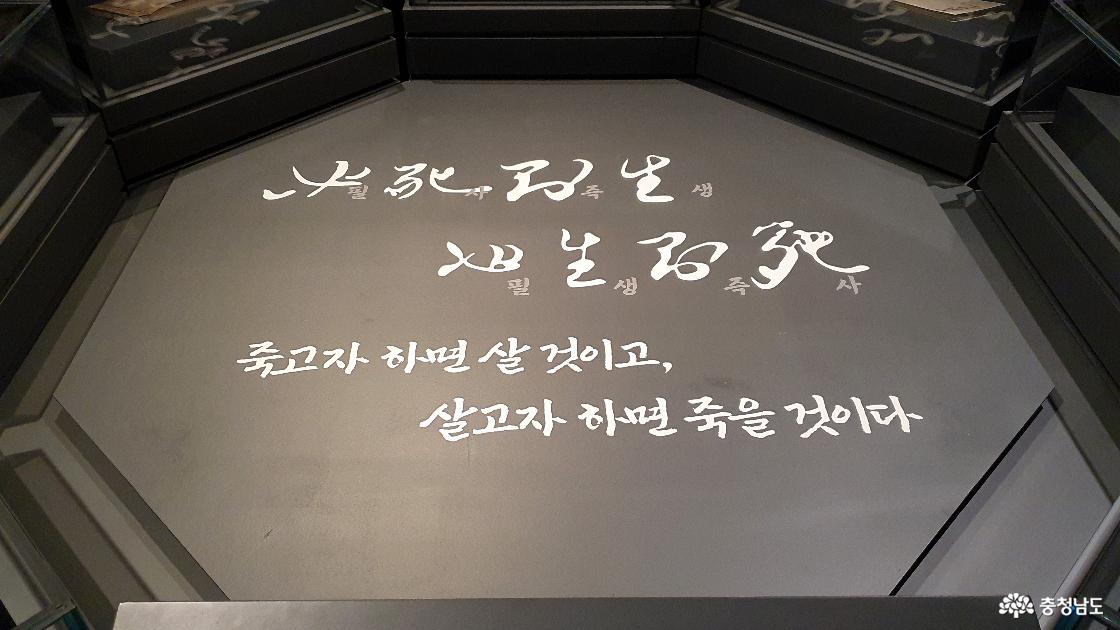 必死則生
필사즉생
必生則死
필생즉사
죽고자 하면 살 것이고,
살고자 하면 죽을 것이다
충청남도